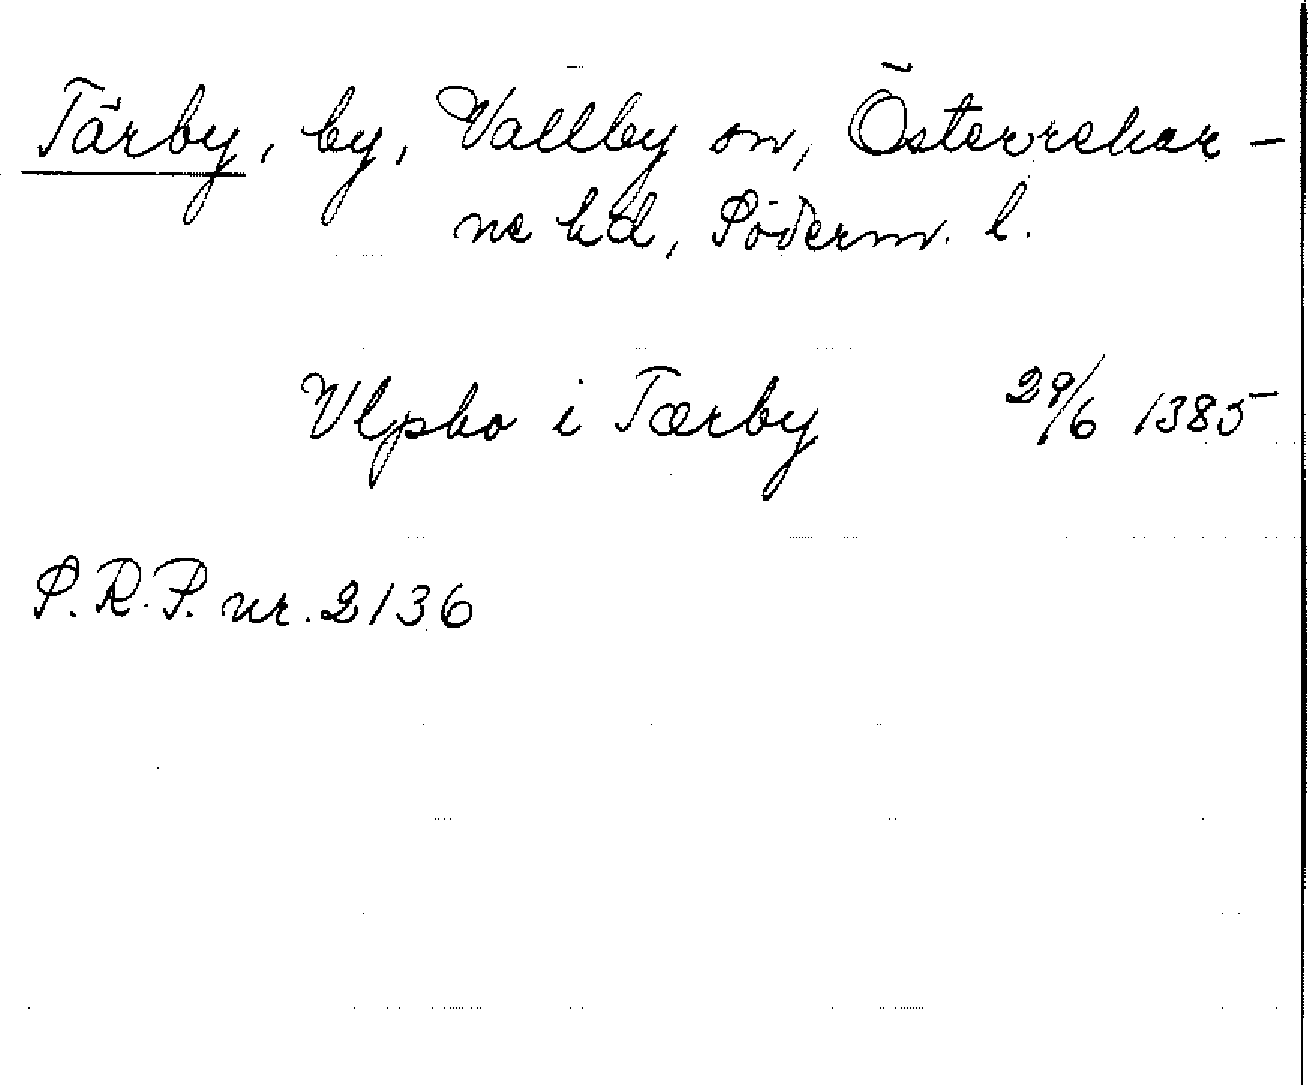 Tärby, by, Vallby sn, Österrekar-
ne hd, Söderm. l.
Vlpho i Tærby 29/6 1385
S.R.P. nr. 2136